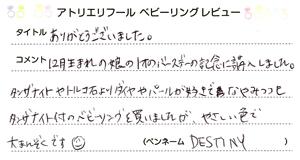 アトリエリフール ベビーリングレビュー
タイトル ありがとうございました。
コメント 12月生まれの娘の1才のバースデーの記念に購入しました。
タンザナイトやトルコ石よりダイヤやパールが好きで なやみつつも
タンザナイト付のベビーリングを買いましたが、やさしい色で
大まんぞくです
(ペンネーム DESTINY )